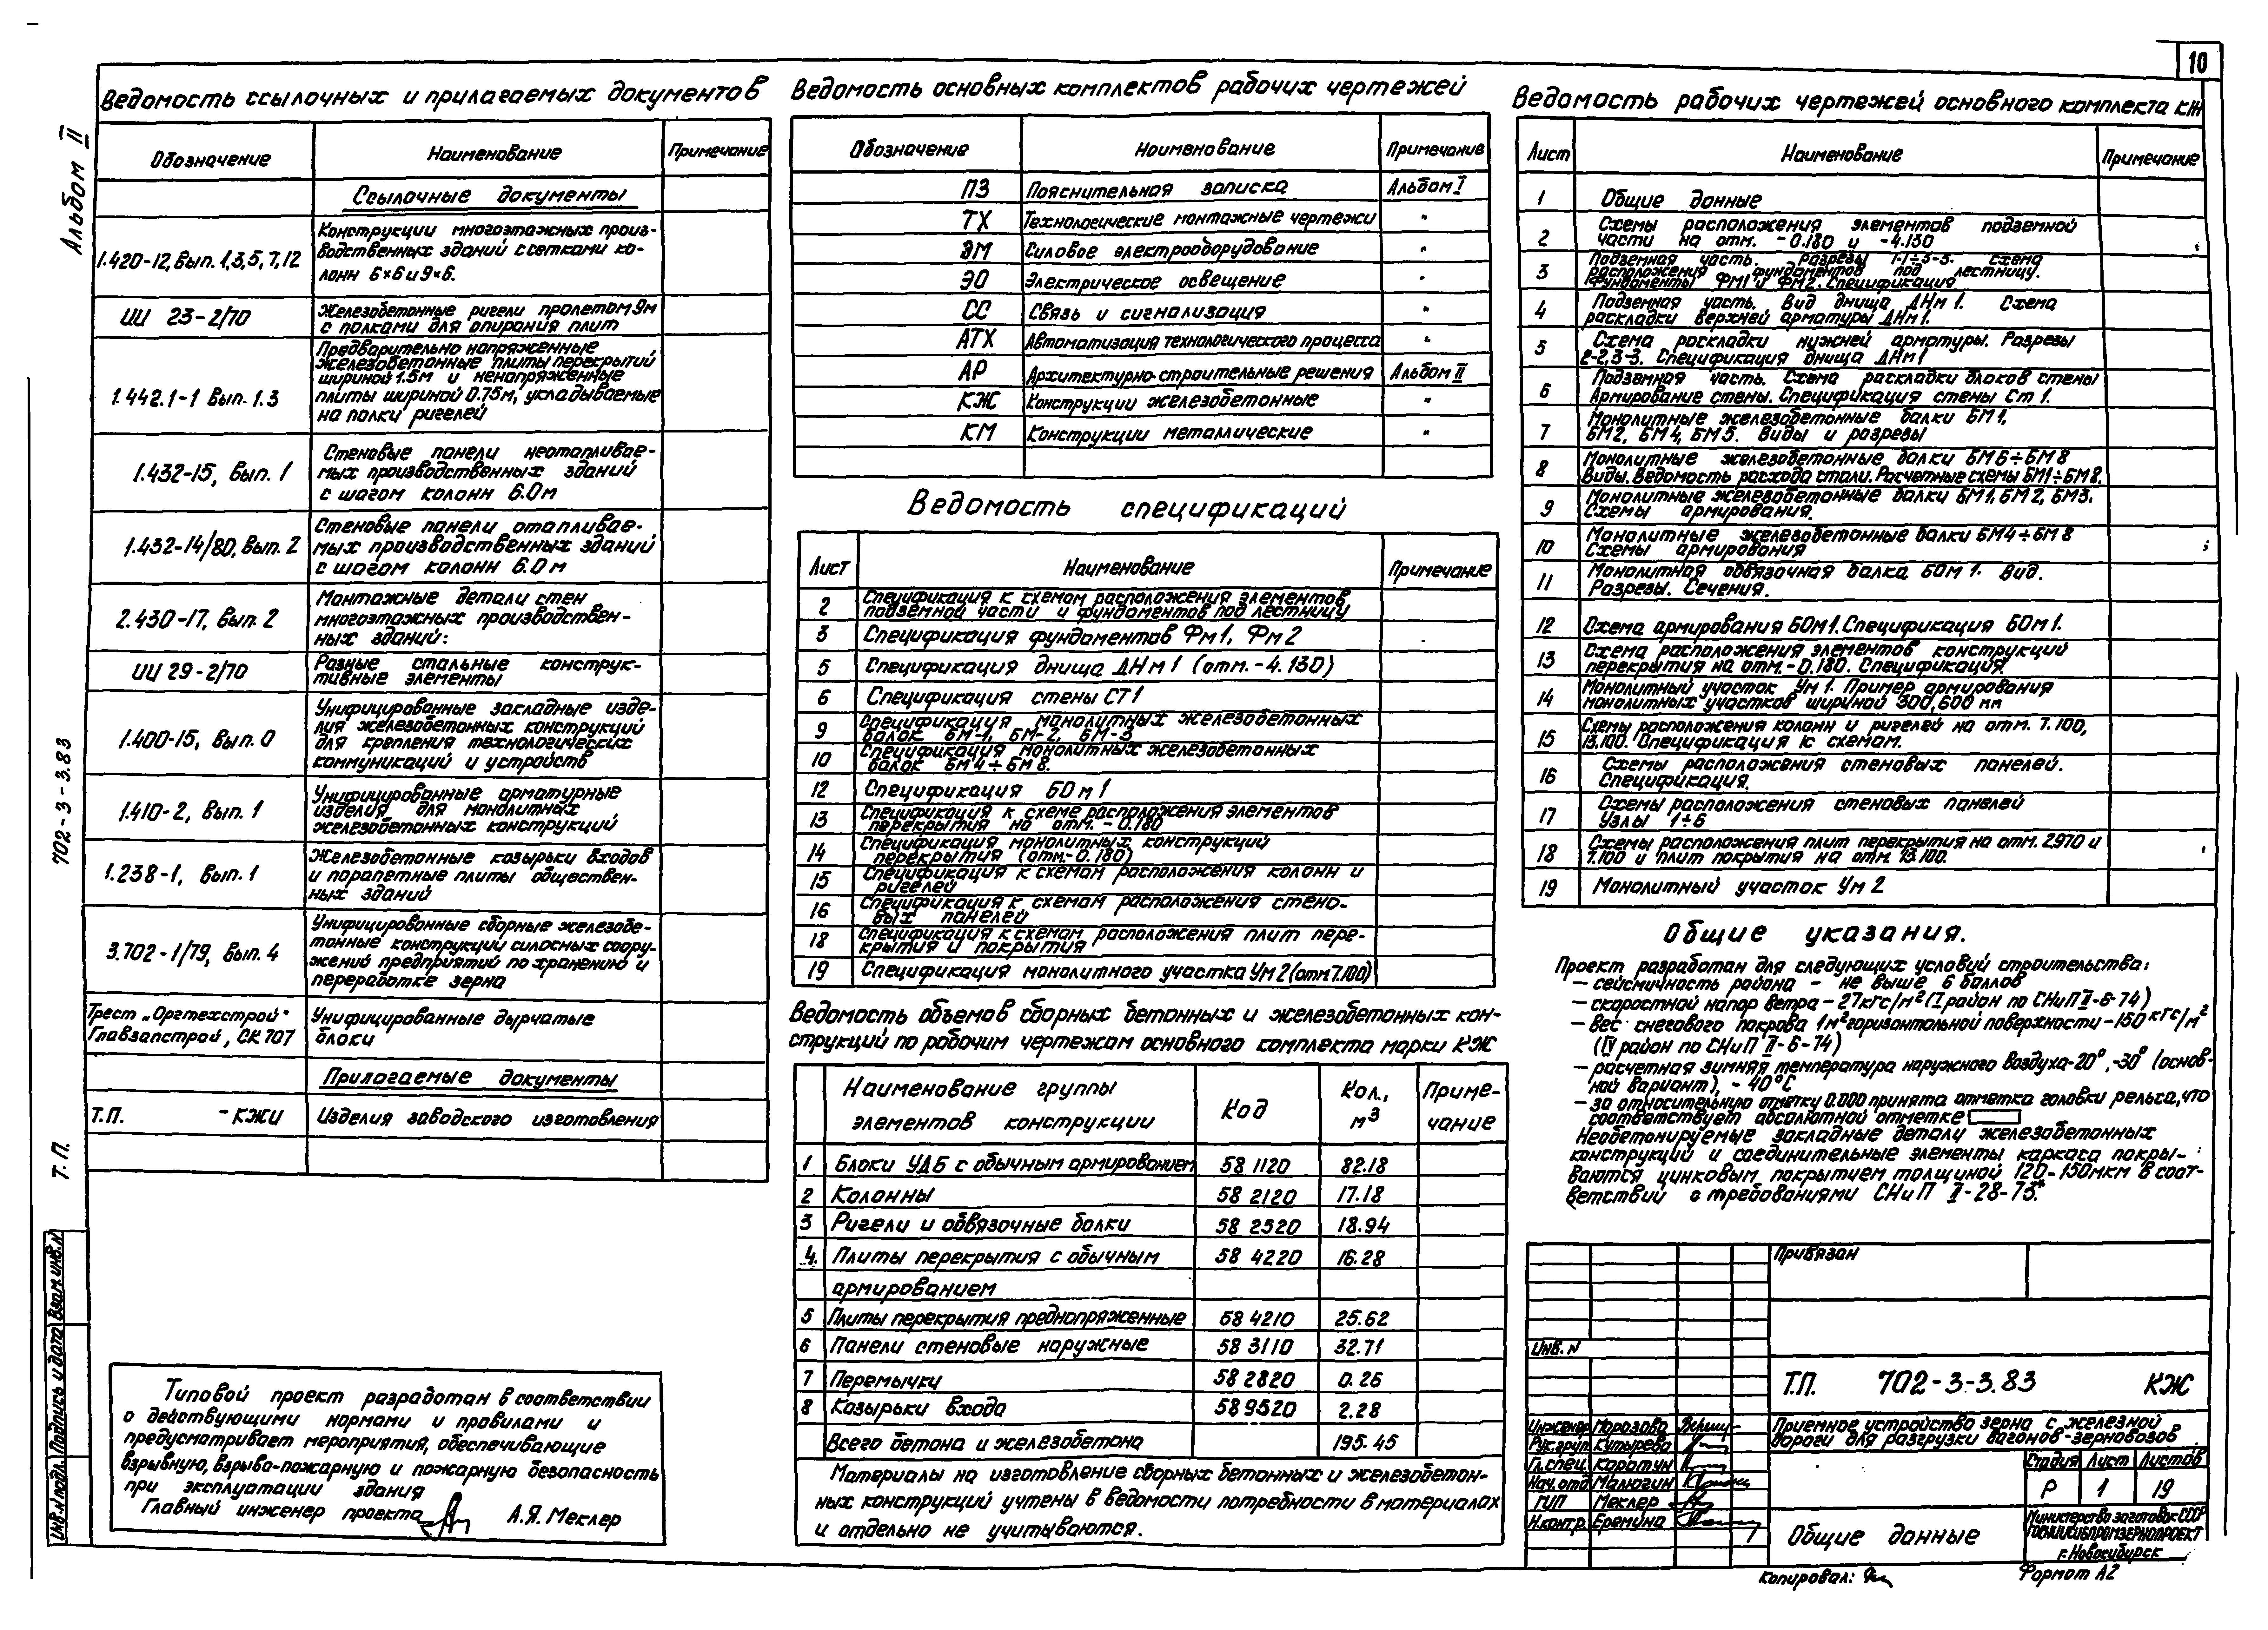 10
Альбом II
702-3-3.83
Т. П.
Взам. инв. N
Подпись и дата
Инв. N подл.
Ведомость ссылочных и прилагаемых документов
Обозначение Наименование Примечание
Ссылочные документы
1.420-12, Вып. 1,3,5,7,12
Конструкции многоэтажных произ-
водственных зданий с сетками ко-
лонн 6×6 и 9×6.
ИИ 23-2/70
Железобетонные ригели пролетом 9м
с полками для опирания плит
1.442.1-1 Вып. 1.3
Предварительно напряженные
железобетонные плиты перекрытий
шириной 1.5м и ненапряженные
плиты шириной 0.75м, укладываемые
на полки ригелей
1.432-15, Вып. 1
Стеновые панели неотапливае-
мых производственных зданий
с шагом колонн 6.0м
1.432-14/80, Вып. 2
Стеновые панели отапливае-
мых производственных зданий
с шагом колонн 6.0м
2.430-17, Вып. 2
Монтажные детали стен
многоэтажных производствен-
ных зданий:
ИИ 29-2/70
Разные стальные конструк-
тивные элементы
1.400-15, Вып. 0
Унифицированные закладные изде-
лия железобетонных конструкций
для крепления технологических
коммуникаций и устройств
1.410-2, Вып. 1
Унифицированные арматурные
изделия для монолитных
железобетонных конструкций
1.238-1, Вып. 1
Железобетонные козырьки входов
и парапетные плиты обществен-
ных зданий
3.702-1/79, Вып. 4
Унифицированные сборные железобе-
тонные конструкции силосных соору-
жений предприятий по хранению и
переработке зерна
Трест „Оргтехстрой"
Главзапстрой, СК 707
Унифицированные дырчатые
блоки
Прилагаемые документы
Т.П. -КЖИ Изделия заводского изготовления
Типовой проект разработан в соответствии
с действующими нормами и правилами и
предусматривает мероприятия, обеспечивающие
взрывную, взрыво-пожарную и пожарную безопасность
при эксплуатации здания
Главный инженер проекта А.Я. Меклер
Ведомость основных комплектов рабочих чертежей
Обозначение Наименование Примечание
ПЗ Пояснительная записка Альбом I
ТХ Технологические монтажные чертежи "
ЭМ Силовое электрооборудование "
ЭО Электрическое освещение "
СС Связь и сигнализация "
АТХ Автоматизация технологического процесса "
АР Архитектурно-строительные решения Альбом II
КЖ Конструкции железобетонные "
КМ Конструкции металлические "
Ведомость спецификаций
Лист Наименование Примечание
2 Спецификация к схемам расположения элементов
подземной части и фундаментов под лестницу
3 Спецификация фундаментов Фм1, Фм2
5 Спецификация днища ДНм1 (отм. -4.130)
6 Спецификация стены СТ1
9 Спецификация монолитных железобетонных
балок БМ-1, БМ-2, БМ-3
10 Спецификация монолитных железобетонных
балок БМ4÷БМ8.
12 Спецификация БОм1
13 Спецификация к схеме расположения элементов
перекрытия на отм. -0.180
14 Спецификация монолитных конструкций
перекрытия (отм.-0.180)
15 Спецификация к схемам расположения колонн и
ригелей
16 Спецификация к схемам расположения стено-
вых панелей
18 Спецификация к схемам расположения плит пере-
крытия и покрытия
19 Спецификация монолитного участка Ум2 (отм 7.100)
Ведомость объемов сборных бетонных и железобетонных кон-
струкций по рабочим чертежам основного комплекта марки КЖ
Наименование группы
элементов конструкции
Код
Кол.,
м³
Приме-
чание
1 Блоки УДБ с обычным армированием 58 1120 82.18
2 Колонны 58 2120 17.18
3 Ригели и обвязочные балки 58 2520 18.94
4. Плиты перекрытия с обычным 58 4220 16.28
армированием
5 Плиты перекрытия преднапряженные 58 4210 25.62
6 Панели стеновые наружные 58 3110 32.71
7 Перемычки 58 2820 0.26
8 Козырьки входа 589520 2.28
Всего бетона и железобетона 195.45
Материалы на изготовление сборных бетонных и железобетон-
ных конструкций учтены в ведомости потребности в материалах
и отдельно не учитываются.
Ведомость рабочих чертежей основного комплекта КЖ
Лист Наименование Примечание
1 Общие данные
2 Схемы расположения элементов подземной
части на отм. -0.180 и -4.130
3 Подземная часть. Разрезы 1-1÷3-3. Схема
расположения фундаментов под лестницу.
Фундаменты ФМ1 и ФМ2. Спецификация
4 Подземная часть. Вид днища ДНм1. Схема
раскладки верхней арматуры ДНм1.
5 Схема раскладки нижней арматуры. Разрезы
2-2, 3-3. Спецификация днища ДНм1
6 Подземная часть. Схема раскладки блоков стены
Армирование стены. Спецификация стены Ст1.
7 Монолитные железобетонные балки БМ1,
БМ2, БМ4, БМ5. Виды и разрезы
8 Монолитные железобетонные балки БМ6÷БМ8
Виды. Ведомость расхода стали. Расчетные схемы БМ1÷БМ8.
9 Монолитные железобетонные балки БМ1, БМ2, БМ3.
Схемы армирования.
10 Монолитные железобетонные балки БМ4÷БМ8
Схемы армирования
11 Монолитная обвязочная балка БОм1. Вид.
Разрезы. Сечения.
12 Схема армирования БОм1. Спецификация БОм1.
13 Схема расположения элементов конструкций
перекрытия на отм.-0.180. Спецификация
14 Монолитный участок Ум1. Пример армирования
монолитных участков шириной 300, 600 мм
15 Схемы расположения колонн и ригелей на отм. 7.100,
13.100. Спецификация к схемам.
16 Схемы расположения стеновых панелей.
Спецификация.
17 Схемы расположения стеновых панелей
Узлы 1÷6
18 Схемы расположения плит перекрытия на отм. 2.970 и
7.100 и плит покрытия на отм. 13.100.
19 Монолитный участок Ум2
Общие указания.
Проект разработан для следующих условий строительства:
— сейсмичность района - не выше 6 баллов
— скоростной напор ветра - 27кгс/м² (I район по СНиП II-6-74)
— вес снегового покрова 1м² горизонтальной поверхности -150 кгс/м²
(IV район по СНиП II-6-74)
— расчетная зимняя температура наружного воздуха-20°, -30° (основ-
ной вариант), -40°С
— за относительную отметку 0.000 принята отметка головки рельса, что
соответствует абсолютной отметке
Необетонируемые закладные детали железобетонных
конструкций и соединительные элементы каркаса покры-
ваются цинковым покрытием толщиной 120-150мкм в соот-
ветствии с требованиями СНиП II-28-73*
Привязан
Инв. N
Т.П. 702-3-3.83 КЖ
Инженер Морозова
Рук. груп. Кутырева
Гл. спец. Коротун
Нач. отд Малюгин
ГИП Меклер
Н.контр. Еремина
Приемное устройство зерна с железной
дороги для разгрузки вагонов-зерновозов
Стадия Лист Листов
Р 1 19
Общие данные
Министерство заготовок СССР
ГОСНИИСИБПРОМЗЕРНОПРОЕКТ
г. Новосибирск
Копировал:
Формат А2